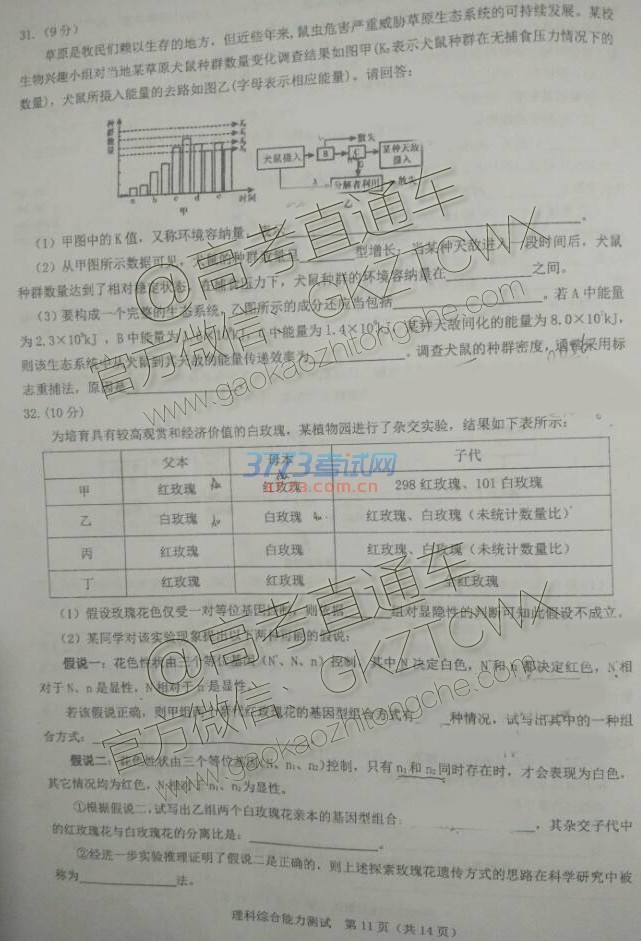 31.(9分)
草原是牧民们赖以生存的地方，但近些年来,鼠虫危害严重威胁草原生态系统的可持续发展。某校
生物兴趣小组对当地某草原犬鼠种群数量变化调查结果如图甲(K₀表示犬鼠种群在无捕食压力情况下的
数量)，犬鼠所摄入能量的去路如图乙(字母表示相应能量)。请回答：
种群数量
a b c d e
时间
甲
犬鼠摄入
B
C
散失
某种天敌摄入
A
分解者利用
散失
乙
(1)甲图中的K值，又称环境容纳量，
(2)从甲图所示数据可见，犬鼠的种群数量呈______型增长；当某种天敌进入一段时间后，犬鼠
种群数量达到了相对稳定状态，在捕食压力下，犬鼠种群的环境容纳量在________之间。
(3)要构成一个完整的生态系统，乙图所示的成分还应当包括________。若A中能量
为2.3×10 kJ，B中能量为 中能量为1.4×10 kJ，某种天敌同化的能量为8.0×10 kJ，
则该生态系统中从犬鼠到其天敌的能量传递效率为________。调查犬鼠的种群密度，通常采用标
志重捕法，原因是
32.(10分)
为培育具有较高观赏和经济价值的白玫瑰，某植物园进行了杂交实验，结果如下表所示：
父本 母本 子代
甲 红玫瑰 红玫瑰 298红玫瑰、101白玫瑰
乙 白玫瑰 白玫瑰 红玫瑰、白玫瑰（未统计数量比）
丙 红玫瑰 白玫瑰 红玫瑰、白玫瑰（未统计数量比）
丁 红玫瑰 红玫瑰 红玫瑰
(1)假设玫瑰花色仅受一对等位基因控制，则依据______组对显隐性的判断可知此假设不成立。
(2)某同学对该实验现象提出以下两种可能的假说：
假说一：花色性状由三个等位基因(N、N、n)控制，其中N决定白色，N和n都决定红色，N相
对于N、n是显性，N相对于n是显性。
若该假说正确，则甲组 红玫瑰花的基因型组合方式有____种情况，试写出其中的一种组
合方式：
假说二：花色性状由三个等位基因(N、n₁、n₂)控制，只有n₁和n₂同时存在时，才会表现为白色，
其它情况均为红色，N相对于n₁、n₂为显性。
①根据假说二，试写出乙组两个白玫瑰花亲本的基因型组合：________，其杂交子代中
的红玫瑰花与白玫瑰花的分离比是：________。
②经进一步实验推理证明了假说二是正确的，则上述探索玫瑰花遗传方式的思路在科学研究中被
称为________法。
理科综合能力测试 第11页（共14页）
@高考直通车
官方微信：GKZTCWX
www.gaokaozhitongche.com
3773考试网
@高考直通车
官方微信：GKZTCWX
www.gaokaozhitongche.com